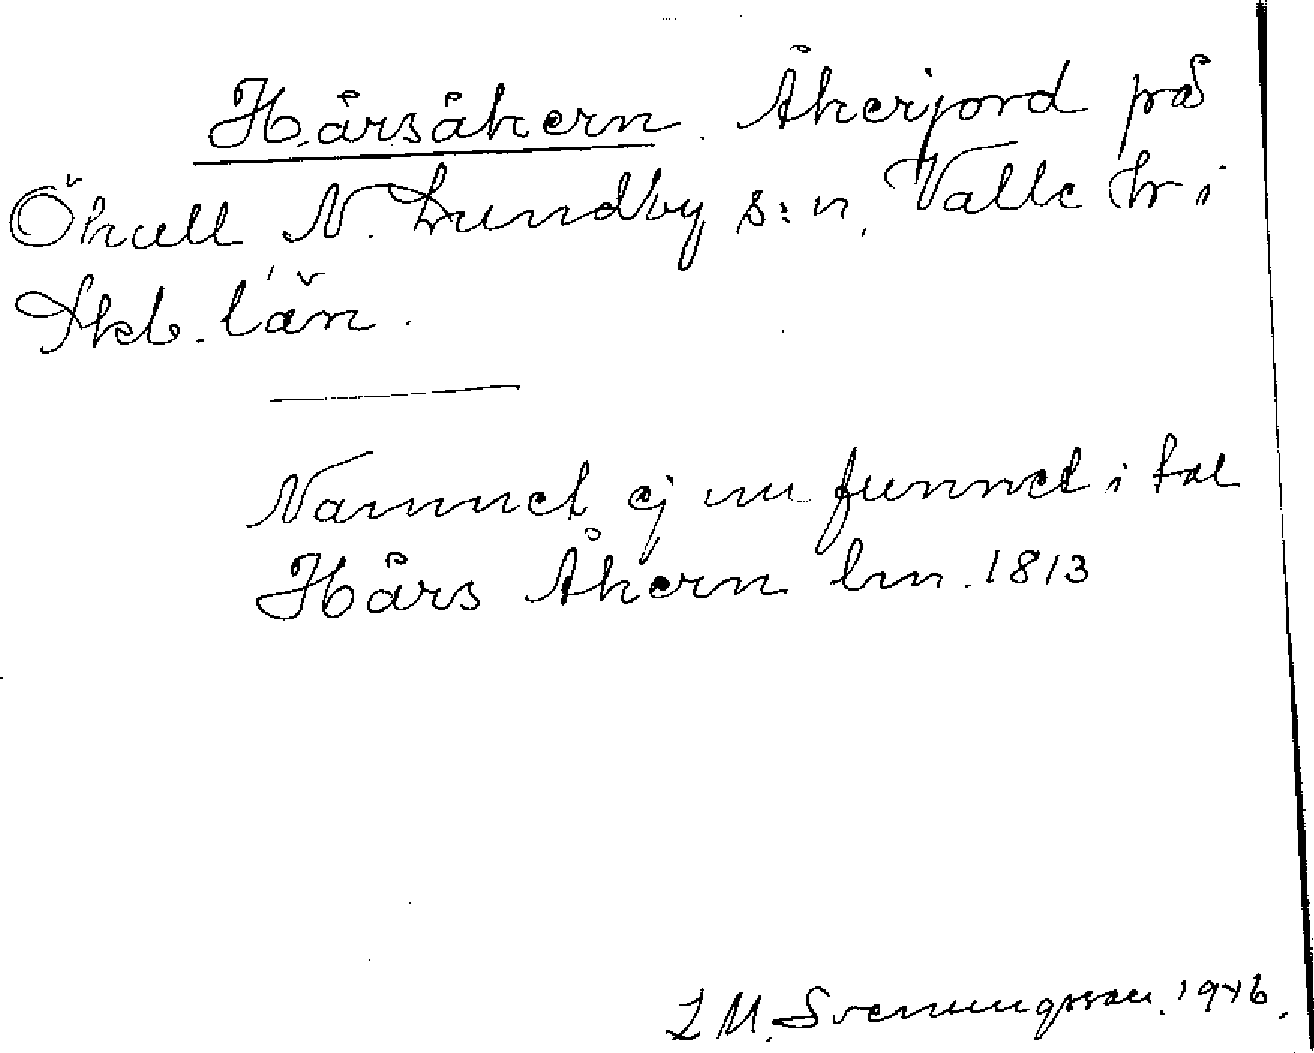 Hårsåkern. Åkerjord på
Ökull N. Lundby s:n, Valle hr i
Skb. län.
Namnet ej nu funnet i tal
Hårs Åkern lm. 1813
L M. Svenungsson. 1946.